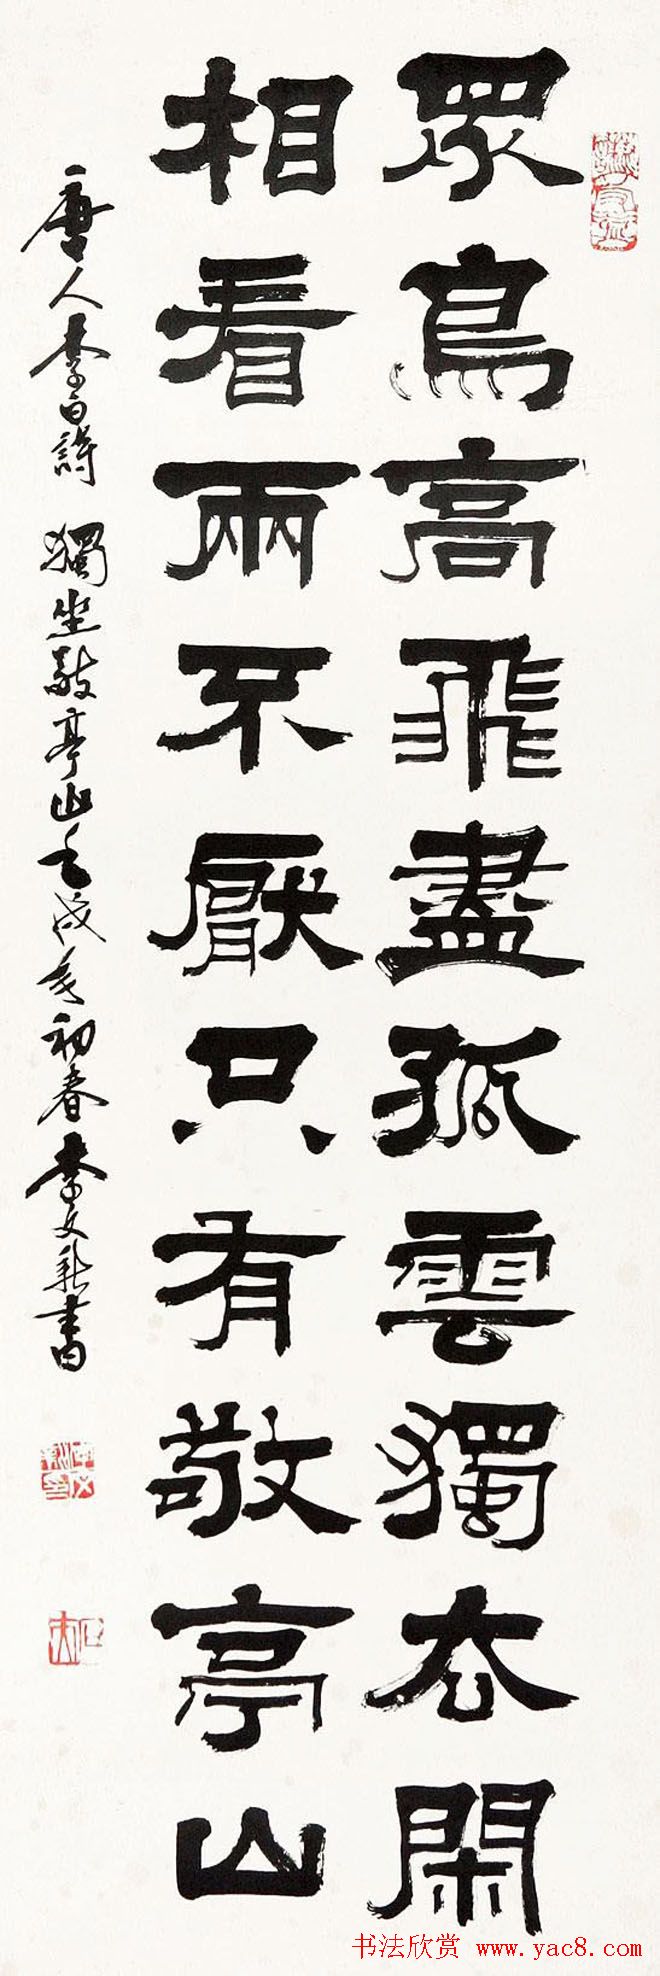 眾鳥高飛盡孤雲獨去閑
相看兩不厭只有敬亭山
唐人李白詩 獨坐敬亭山壬戌年初春李文新書
书法欣赏 www.yac8.com